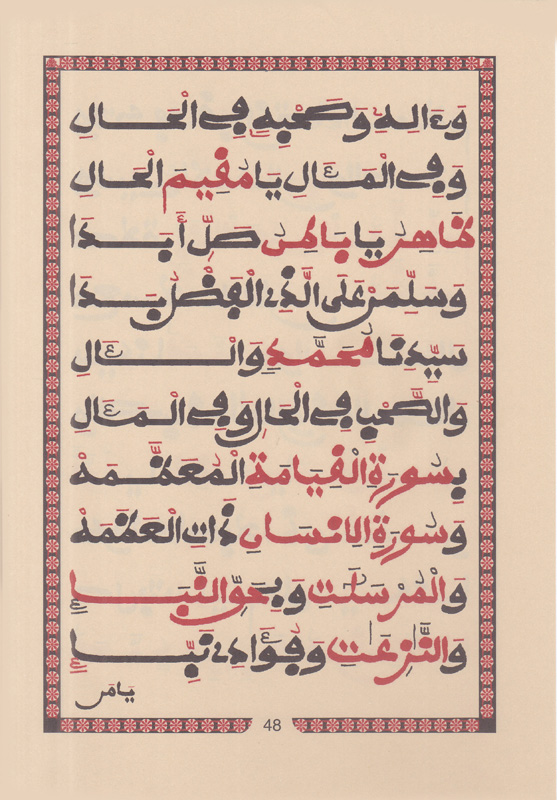 وَءَالِهِ وَصَحْبِهِ فِي الْحَالِ
وَفِي الْمَئَالِ يَا مُقِيمَ الْحَالِ
ظَاهِرُ يَا بَاطِنُ صَلِّ أَبَدَا
وَسَلِّمَنْ عَلَى الَّذِي الْفَضْلُ بَدَا
سَيِّدِنَا مُحَمَّدٍ وَالْئَالِ
وَالصَّحْبِ فِي الْحَالِ وَفِي الْمَئَالِ
بِسُورَةِ الْقِيَامَةِ الْمُعَظَّمَهْ
وَسُورَةِ الْإِنْسَانِ ذَاتِ الْعَظَمَهْ
وَالْمُرْسَلَٰتِ وَبِحَقِّ النَّبَإِ
وَالنَّٰزِعَٰتِ وَفُؤَادِي نَبِّإِ
يَا مَن
48